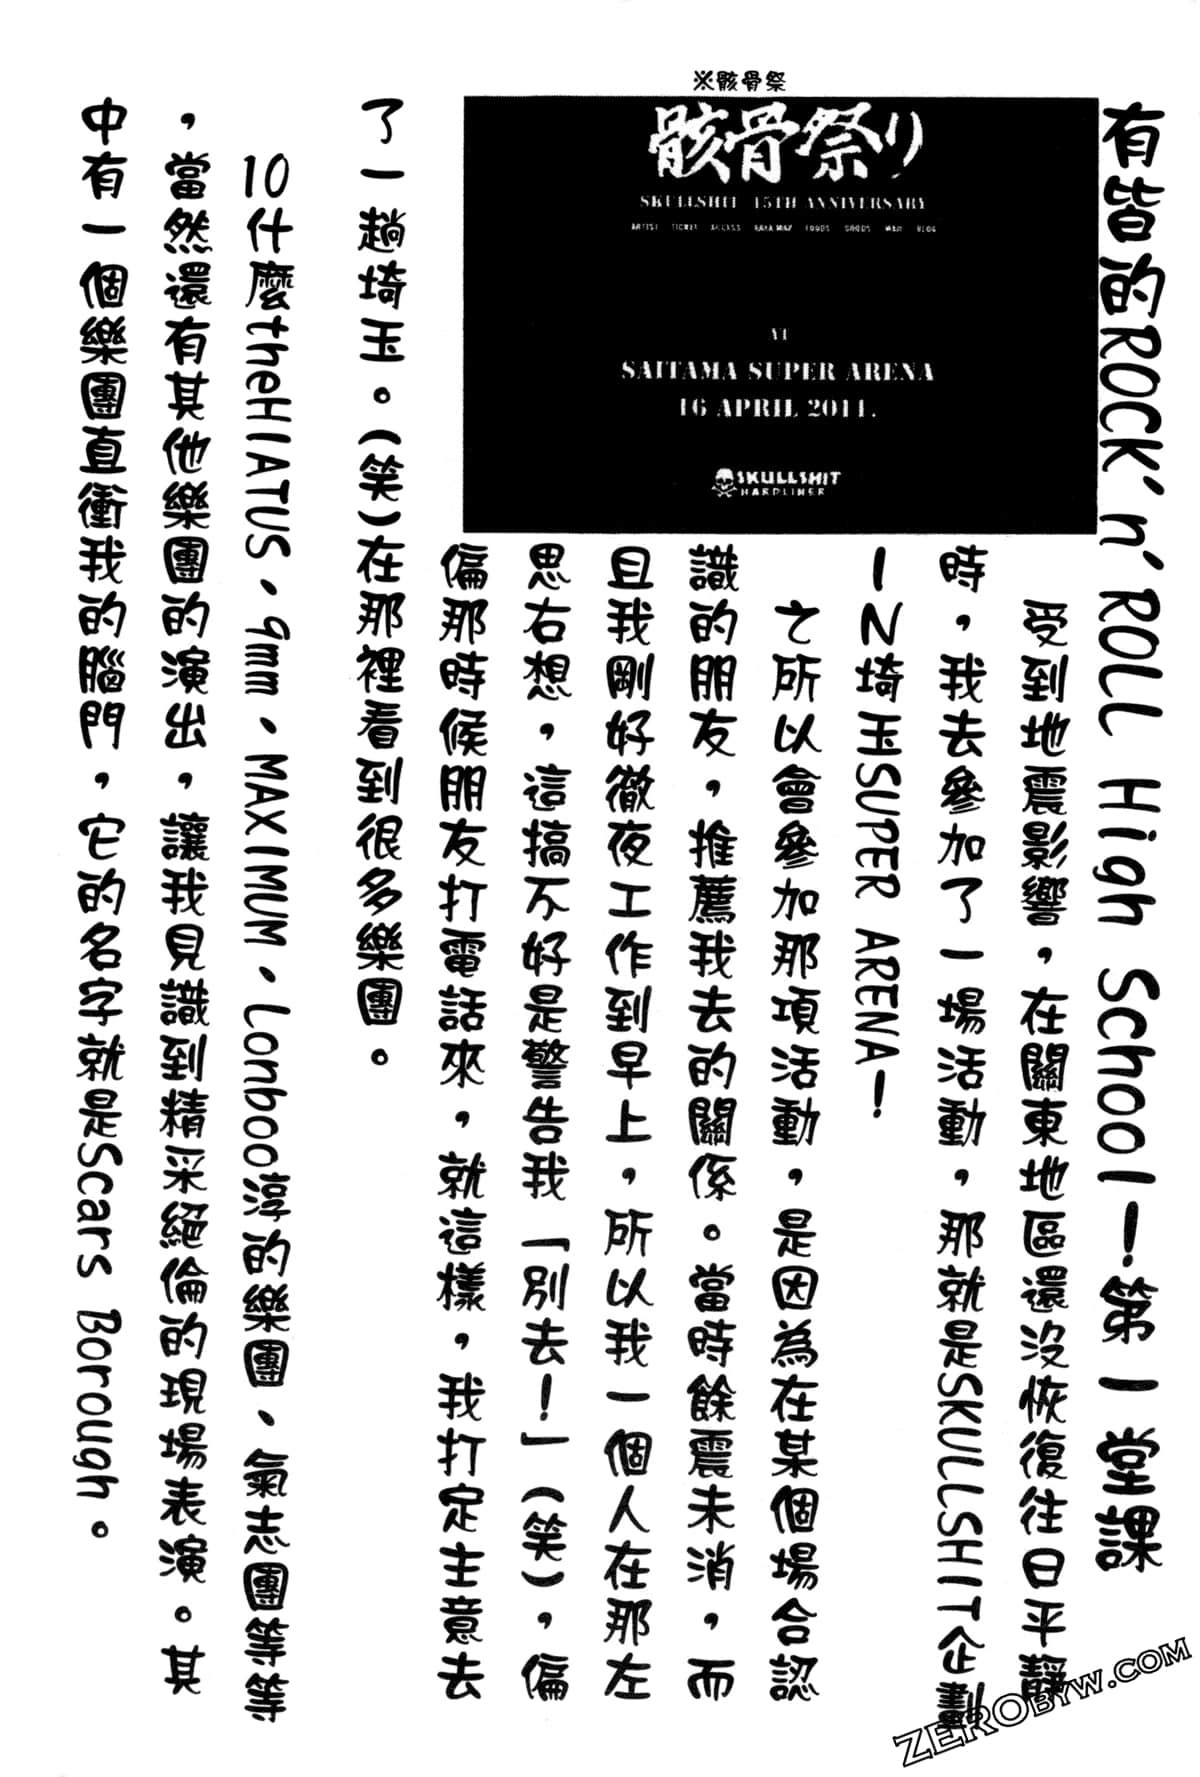 有皆的ROCK'n'ROLL High School！第一堂課
※骸骨祭
骸骨祭り
SKULLSHIT 15TH ANNIVERSARY
ARTIST TICKET ACCESS BABA MAP FOODS GOODS BLOG
AT
SAITAMA SUPER ARENA
16 APRIL 2011.
SKULLSHIT
HARDLINER
受到地震影響，在關東地區還沒恢復往日平靜
時，我去參加了一場活動，那就是SKULLSHIT企劃
IN埼玉SUPER ARENA！
之所以會參加那項活動，是因為在某個場合認
識的朋友，推薦我去的關係。當時餘震未消，而
且我剛好徹夜工作到早上，所以我一個人在那左
思右想，這搞不好是警告我「別去！」（笑），偏
偏那時候朋友打電話來，就這樣，我打定主意去
了一趟埼玉。（笑）在那裡看到很多樂團。
10什麼theHIATUS、9mm、MAXIMUM、Lonboo淳的樂團、氣志團等等
，當然還有其他樂團的演出，讓我見識到精采絕倫的現場表演。其
中有一個樂團直衝我的腦門，它的名字就是Scars Borough。
ZEROBYW.COM